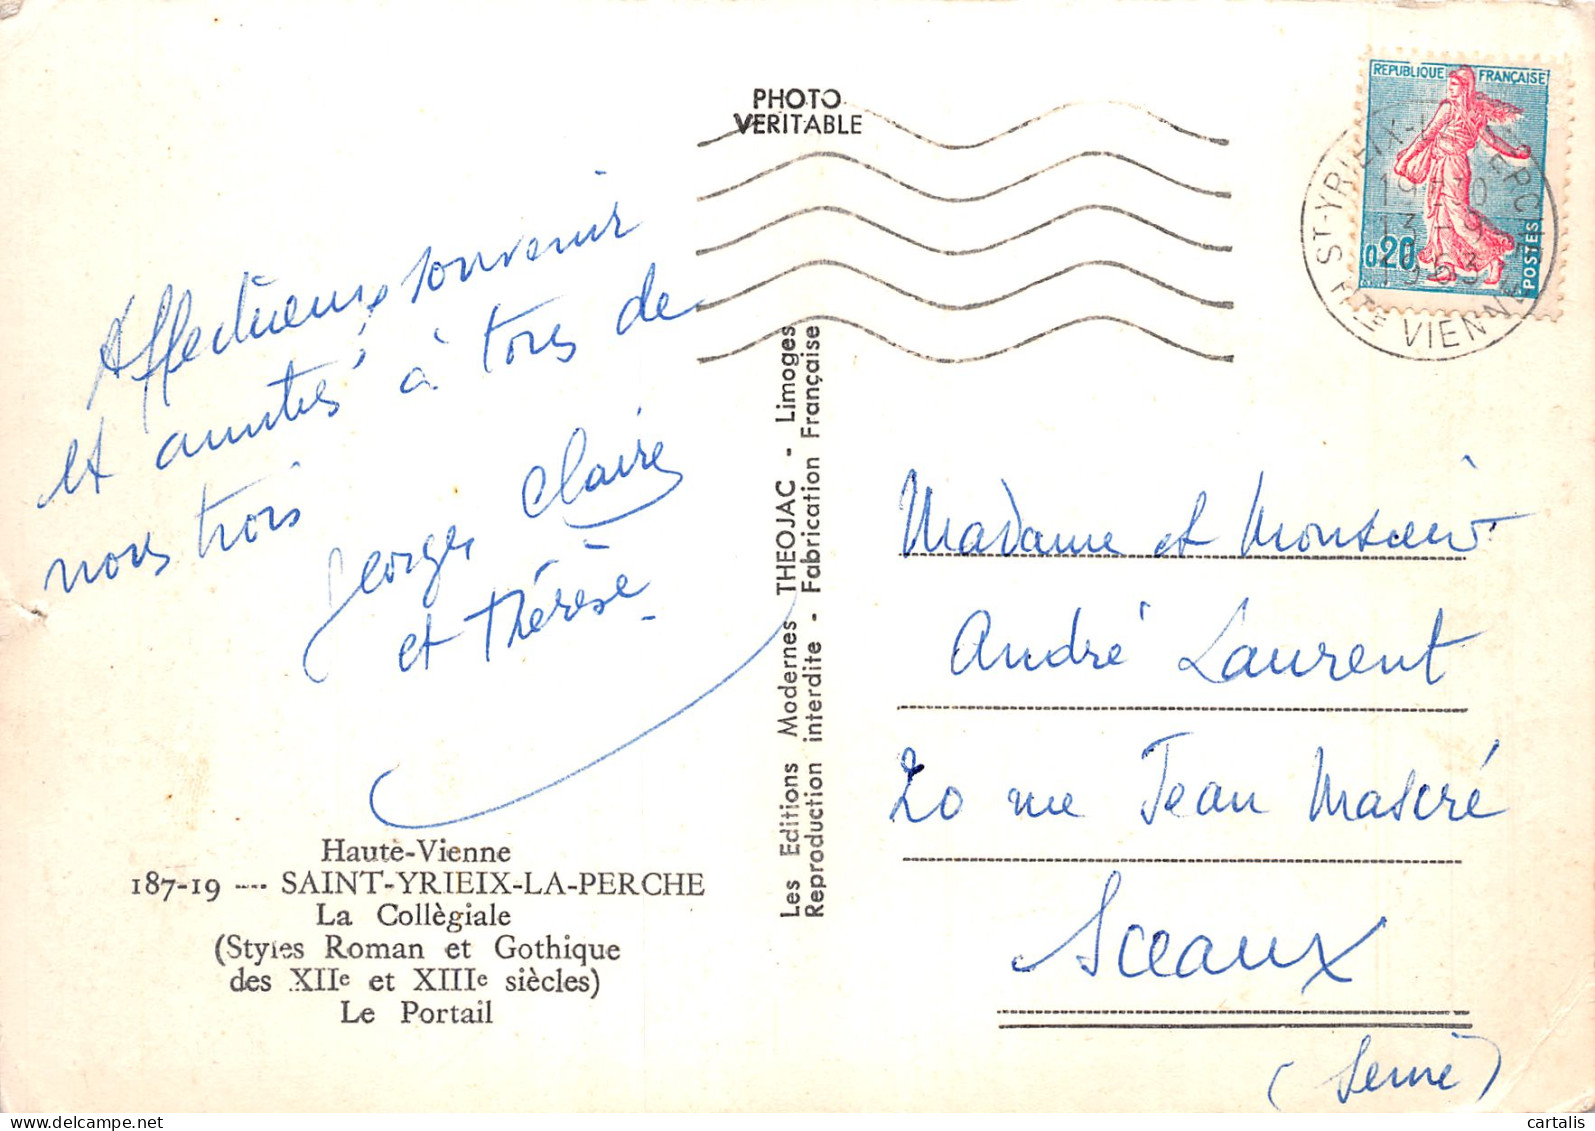 PHOTO
VERITABLE
REPUBLIQUE FRANÇAISE
0,20
POSTES
ST-YRIEIX-LA-PERCHE
13-9
1963
HTE VIENNE
Affectueux souvenir
et amitiés à tous de
nous trois
Georges Claire
et Thérèse
Haute-Vienne
187-19 --- SAINT-YRIEIX-LA-PERCHE
La Collègiale
(Styles Roman et Gothique
des XIIe et XIIIe siècles)
Le Portail
Les Editions Modernes THEOJAC - Limoges
Reproduction interdite - Fabrication Française
Madame et Monsieur
André Laurent
20 rue Jean Mascré
Sceaux
(Seine)
cartalis